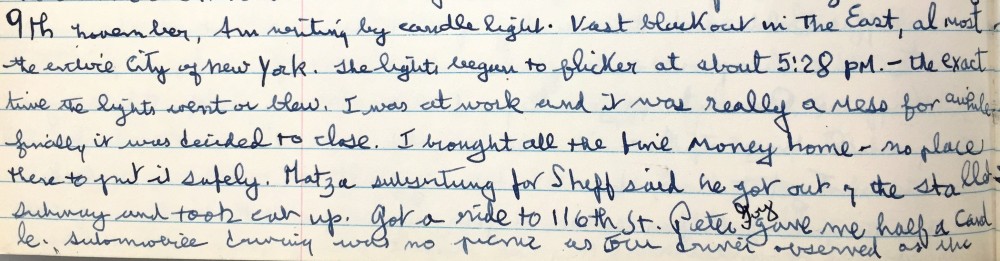 9th november, Am writing by candle light. Vast blackout in The East, al most
the entire City of new York. The lights began to flicker at about 5:28 PM. - the exact
time the lights went or blew. I was at work and it was really a mess for awhile.
finally it was decided to close. I brought all the fine money home - no place
there to put it safely. Matza substituting for Sheff said he got out of the stalled
subway and took cab up. Got a ride to 116th St. Peter Guy gave me half a Cand
le. Automobile driving was no picnic as our driver observed as the